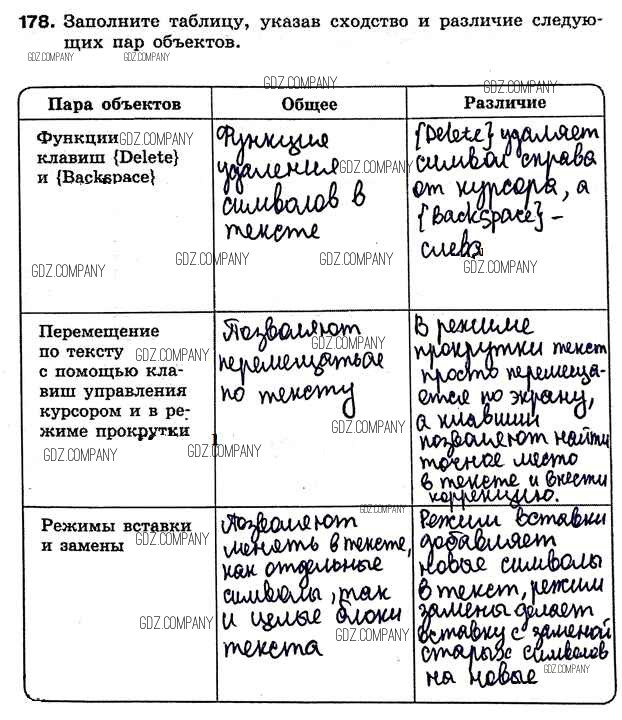 178. Заполните таблицу, указав сходство и различие следую-
щих пар объектов.
GDZ.COMPANY GDZ.COMPANY
GDZ.COMPANY GDZ.COMPANY
Пара объектов Общее Различие
Функции
клавиш {Delete}
и {Backspace}
GDZ.COMPANY
Функция
удаления
символов в
тексте
GDZ.COMPANY
{Delete} удаляет
символ справа
от курсора, а
{Backspace} –
слева
GDZ.COMPANY GDZ.COMPANY GDZ.COMPANY GDZ.COMPANY
Перемещение
по тексту
с помощью кла-
виш управления
курсором и в ре-
жиме прокрутки
GDZ.COMPANY
GDZ.COMPANY
Позволяют
перемещаться
по тексту
GDZ.COMPANY
GDZ.COMPANY
В режиме
прокрутки текст
просто перемеща-
ется по экрану,
а клавиши
позволяют найти
точное место
в тексте и внести
коррекцию.
GDZ.COMPANY
GDZ.COMPANY
GDZ.COMPANY
Режимы вставки
и замены
GDZ.COMPANY
GDZ.COMPANY
Позволяют
менять в тексте,
как отдельные
символы, так
и целые блоки
текста
GDZ.COMPANY
GDZ.COMPANY
GDZ.COMPANY
Режим вставки
добавляет
новые символы
в текст, режим
замены делает
вставку с заменой
старых символов
на новые
GDZ.COMPANY